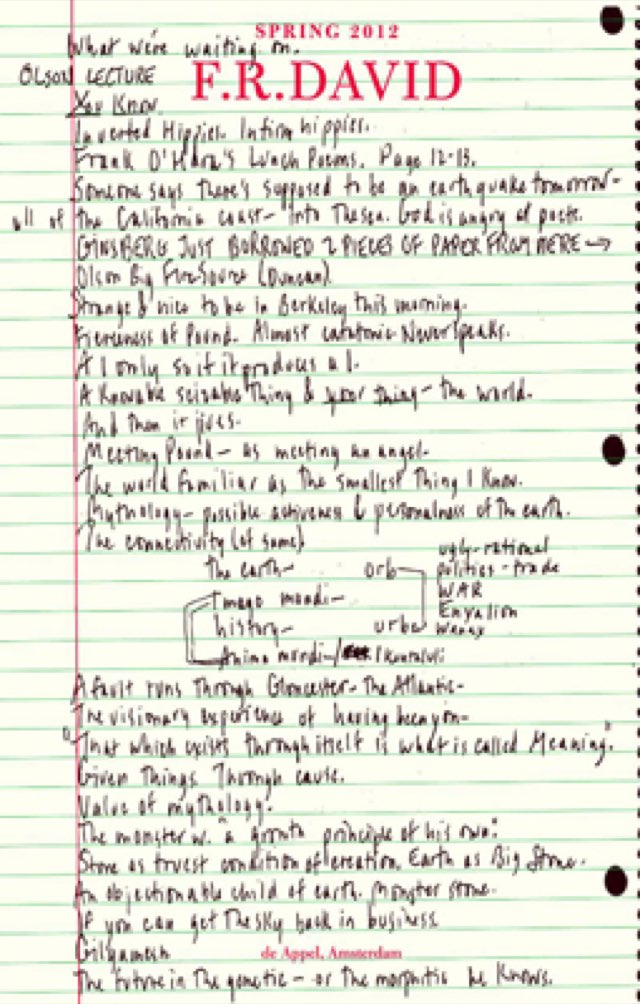 SPRING 2012
What we're waiting on.
OLSON LECTURE
F.R.DAVID
You Know
Inverted Hippies. Infirm hippies.
Frank O'Hara's Lunch Poems. Page 12-13.
Someone says there's supposed to be an earthquake tomorrow-
all of the California coast- Into The sea. God is angry at poets.
GINSBERG JUST BORROWED 2 PIECES OF PAPER FROM HERE →
Olson Big Fire Source (Duncan)
Strange & nice to be in Berkeley this morning.
Fierceness of Pound. Almost catatonic Never speaks.
A I only so if it produces a 1.
A Knowable seizable Thing & thing- the world.
And then it
Meeting Pound- as meeting an angel.
The world familiar as The smallest Thing I Know.
Mythology- possible activeness & personalness of The earth.
The connectivity (of same)
The earth-
Imago mundi-
history-
Anima mundi-/
orb
urbe
ugly-rational
politics-trade
WAR
Enyalion
Wanax
A fault runs Through Gloucester- The Atlantic-
The visionary experience of having been
"That which exists through itself is what is called Meaning."
Given Things Through cause.
Value of mythology:
The monster w. "a growth principle of his own":
Stone as truest condition of creation. Earth as Big Stone.
An objectionable child of earth. Monster stone.
If you can get The sky back in business
Gilgamesh
de Appel, Amsterdam
The future in The genetic - or The morphitic he Knows.